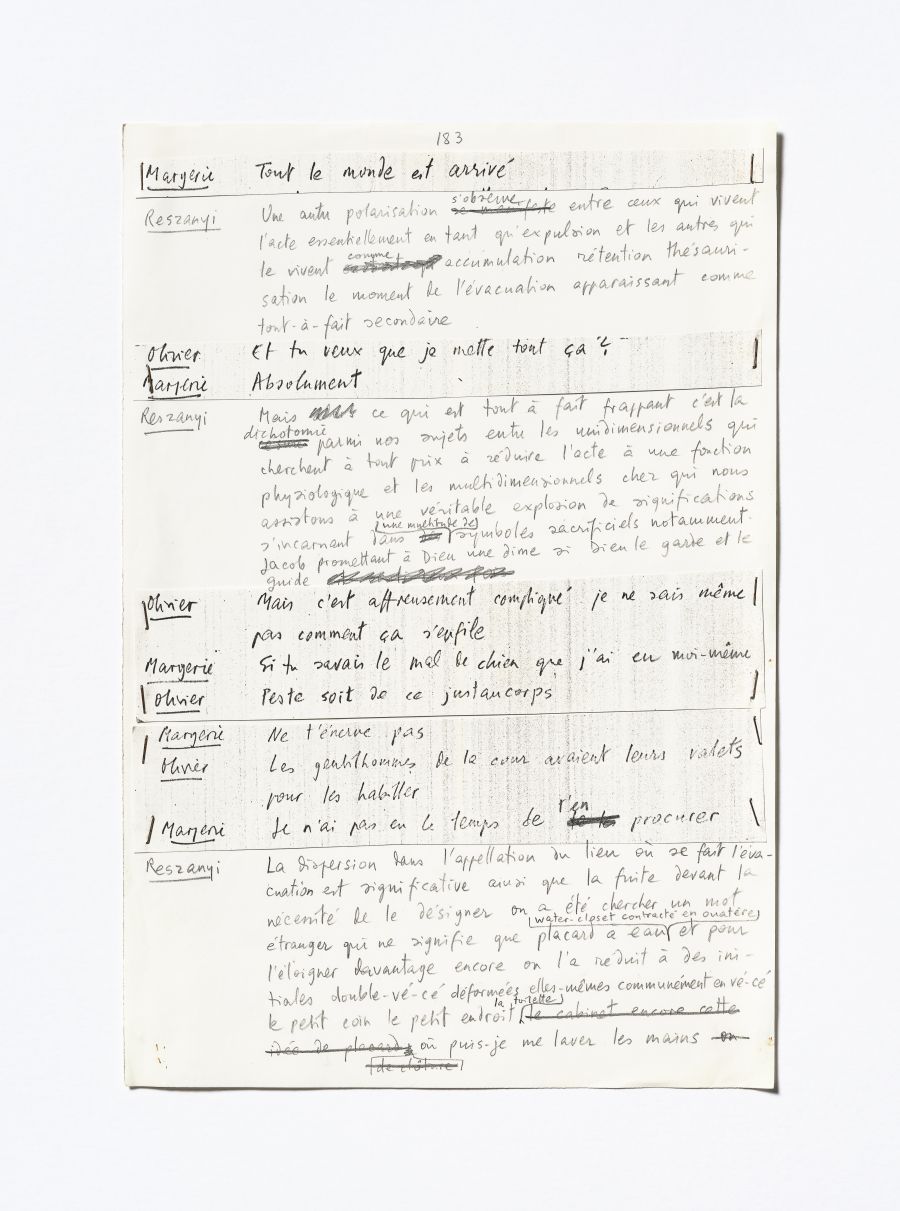 183
Margerie Tout le monde est arrivé
Reszanyi Une autre polarisation s'observe entre ceux qui vivent
l'acte essentiellement en tant qu'expulsion et les autres qui
le vivent comme accumulation rétention thésauri-
sation le moment de l'évacuation apparaissant comme
tout-à-fait secondaire
Olivier Et tu veux que je mette tout ça ?
Margerie Absolument
Reszanyi Mais ce qui est tout à fait frappant c'est la
dichotomie parmi nos sujets entre les unidimensionnels qui
cherchent à tout prix à réduire l'acte à une fonction
physiologique et les multidimensionnels chez qui nous
assistons à une véritable explosion de significations
s'incarnant dans une multitude de symboles sacrificiels notamment
Jacob promettant à Dieu une dîme si Dieu le garde et le
guide
Olivier Mais c'est affreusement compliqué je ne sais même
pas comment ça s'enfile
Margerie Si tu savais le mal de chien que j'ai eu moi-même
Olivier Peste soit de ce justaucorps
Margerie Ne t'énerve pas
Olivier Les gentilhommes de la cour avaient leurs valets
pour les habiller
Margerie Je n'ai pas eu le temps de t'en procurer
Reszanyi La dispersion dans l'appellation du lieu où se fait l'éva-
cuation est significative ainsi que la fuite devant la
nécessité de le désigner on a été chercher un mot
étranger qui ne signifie que placard à eau water-closet contracté en ouatère et pour
l'éloigner davantage encore on l'a réduit à des ini-
tiales double-vé-cé déformées elles-mêmes communément en vé-cé
le petit coin le petit endroit la toilette le cabinet encore cette
idée de placard où puis-je me laver les mains on
de clôture